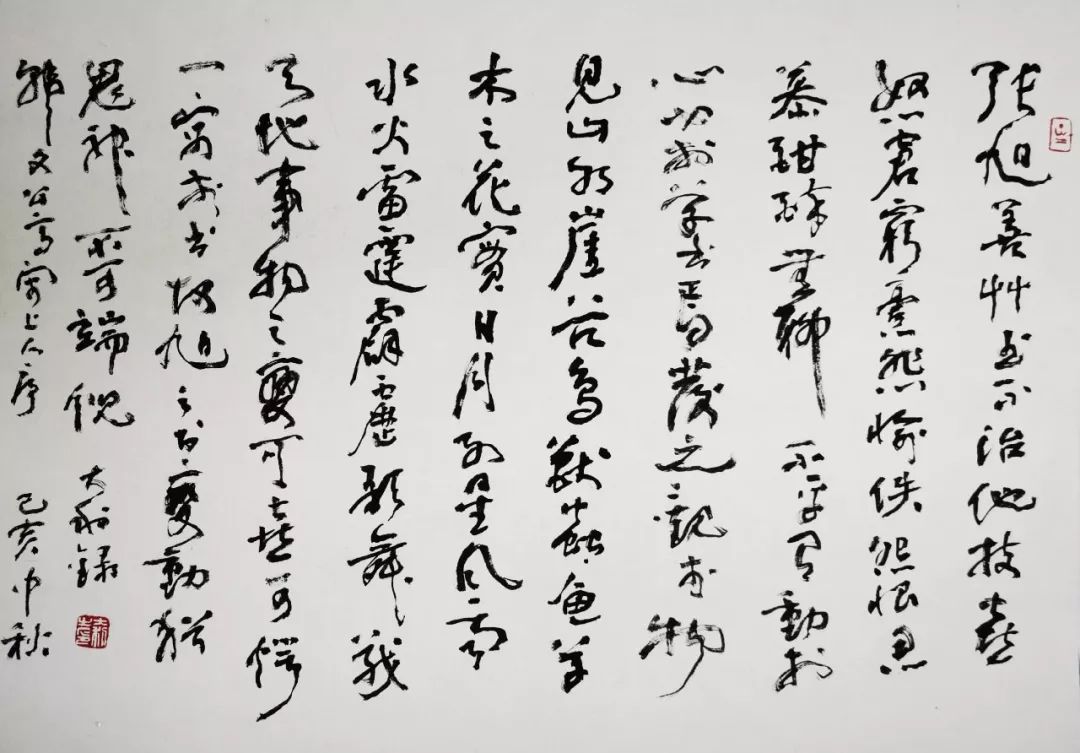 張旭善艸書不治他技喜
怒窘窮憂悲愉佚怨恨思
慕酣醉無聊不平有動於
心必於草書焉發之觀於物
見山水崖谷鳥獸蟲魚草
木之花實日月列星風雨
水火雷霆霹靂歌舞戰
天地事物之變可喜可愕
一寓於書故旭之書變動猶
鬼神不可端倪
韓文公高閑上人序
大錄
己亥中秋